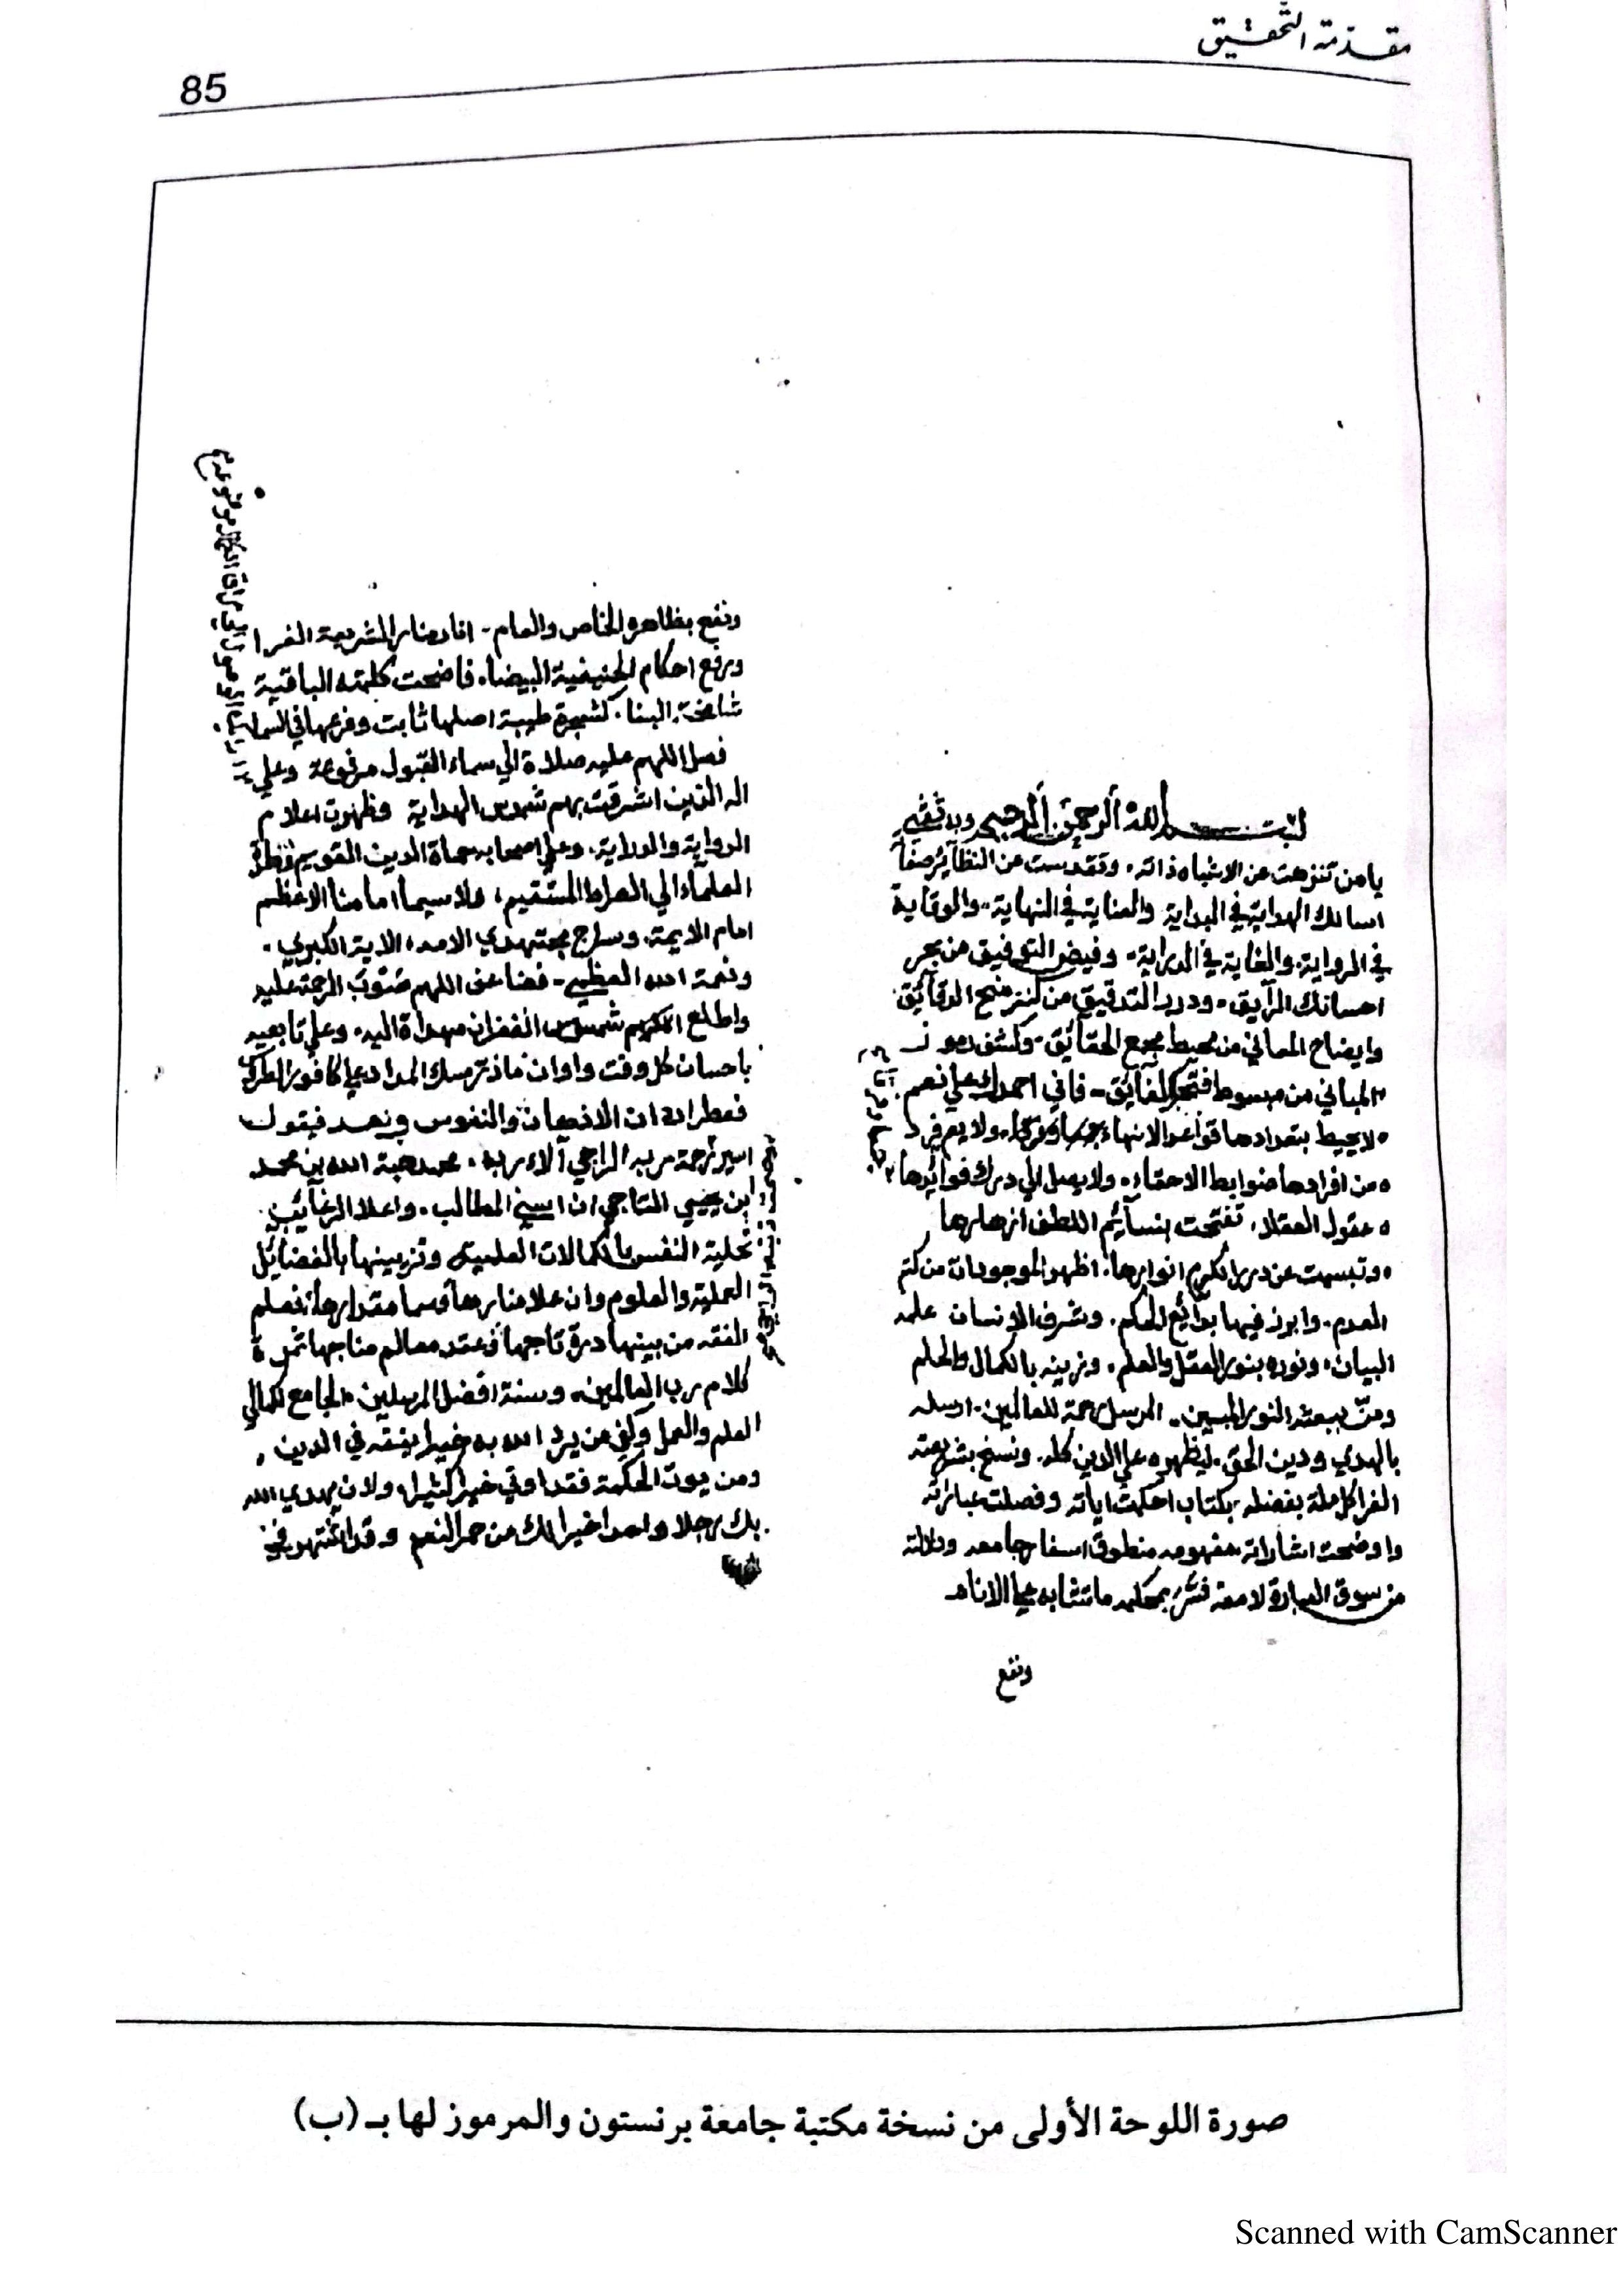 مقدمة التحقيق
85
بسم الله الرحمن الرحيم وبه ثقتي
يا من تنزهت عن الاشباه ذاته وتقدست عن النظائر صفاته
اسالك الهداية في البداية والعناية في النهاية والوقاية
في الرواية والغاية في الدراية وفيض التوفيق من بحر
احسانك الرايق ودرر التدقيق من كنز منح الدقائق
وايضاح المعاني من محيط مجمع الحقائق وكشف رموز
المباني من مبسوط فتحك الفايق فاني احمدك علي نعم
لا يحيط بتعدادها قواعد الانتهاء ولا يعرفرد
من افرادها ضوابط الاحصاء ولا يصل الي درك فوائدها
عقول العقلا تفتحت بنسائم اللطف ازهارها
وتبسمت عن درر الكرم انوارها اظهر الموجودات من كتم
العدم وابرز فيها بدائع الحكم وشرف الانسان علمه
البيان ونوره بنور العقل والعلم وزينه بالكمال والحلم
ومن ببعثه النور المبين المرسل رحمة للعالمين ارسله
بالهدي ودين الحق ليظهره علي الدين كله ونسخ بشريعته
الغرا كل ملة بفضله بكتاب احكمت اياته وفصلت عباراته
واوضحت اشاراته مفهومه منطوق اسفار جامعه ودلالته
من سوق العبارة لامعه فسر بمحكمه ما تشابه علي الانام
ونفع
ونفع بظاهره الخاص والعام انار منار الشريعة الغرا
ورفع احكام الحنيفية البيضا فاضحت كلمته الباقية
شامخة البنا كشجرة طيبة اصلها ثابت وفرعها في السماء
فصل اللهم عليه صلاة الي سماء القبول مرفوعة وعلي
اله الذين اشرقت بهم شموس الهداية وظهرت اعلام
الرواية والدراية وعلي اصحابه حماة الدين القويم
العلماء الي الصراط المستقيم ولا سيما امامنا الاعظم
امام الايمة وسراج مجتهدي الامه الاية الكبري
ونعمة الله العظمي فضاعف اللهم صوب الرحمة عليه
واطلع اللهم شموس الغفران مهداة اليه وعلي تابعيه
باحسان كل وقت واوان ما ذر مسك المداد علي كافور الطرس
فعطر اردان الاذهان والنفوس وبعد فيقول
اسير رحمة ربه الراجي آلاء ربه محمد هبة الله بن محمد
ابن يحيي التاجي ان اسني المطالب واعلا الرغائب
تحلية النفس بالكمالات العلمية وتزيينها بالفضائل
العملية والعلوم وان علا منارها وسما مقدارها فعلم
الفقه من بينها درة تاجها وعقد معالم مناجها ثمرة
كلام رب العالمين وسنة افضل المرسلين الجامع لكمالي
العلم والعمل وكفي من يرد الله به خيرا يفقه في الدين
ومن يوت الحكمة فقد اوتي خيرا كثيرا ولان يهدي الله
بك رجلا واحدا خير لك من حمر النعم وقد اشتهر في
صورة اللوحة الأولى من نسخة مكتبة جامعة برنستون والمرموز لها بـ (ب)
Scanned with CamScanner